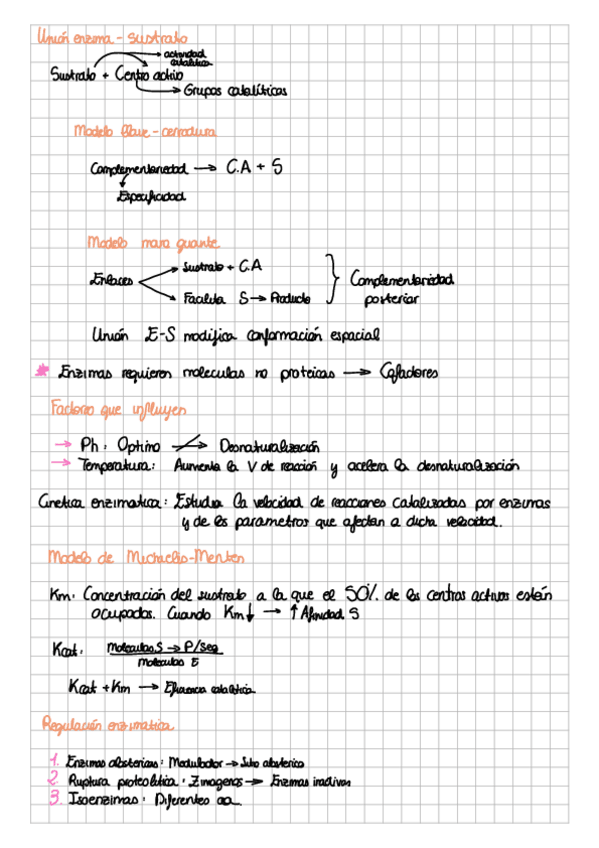 Unión enzima - sustrato
actividad
catalítica
Sustrato + Centro activo
Grupos catalíticos
Modelo llave - cerradura
Complementariedad → C.A + S
Especificidad
Modelo mano guante
Enlaces
Sustrato + C.A
Facilita S → Producto
Complementariedad
posterior
Unión E-S modifica conformación espacial
* Enzimas requieren moleculas no proteicas → Cofactores
Factores que influyen
→ Ph: Optimo → Desnaturalización
→ Temperatura: Aumenta la V de reacción y acelera la desnaturalización
Cinetica enzimatica: Estudia la velocidad de reacciones catalizadas por enzimas
y de los parametros que afectan a dicha velocidad.
Modelo de Michaelis-Menten
Km: Concentración del sustrato a la que el 50% de los centros activos están
ocupados. Cuando Km↓ → ↑ Afinidad S
Kcat: moleculas S → P/seg
moleculas E
Kcat + Km → Eficiencia catalítica
Regulación enzimatica
1. Enzimas alostericas: Modulador → Sitio alosterico
2. Ruptura proteolitica: Zimogenos → Enzimas inactivas
3. Isoenzimas: Diferentes aa.